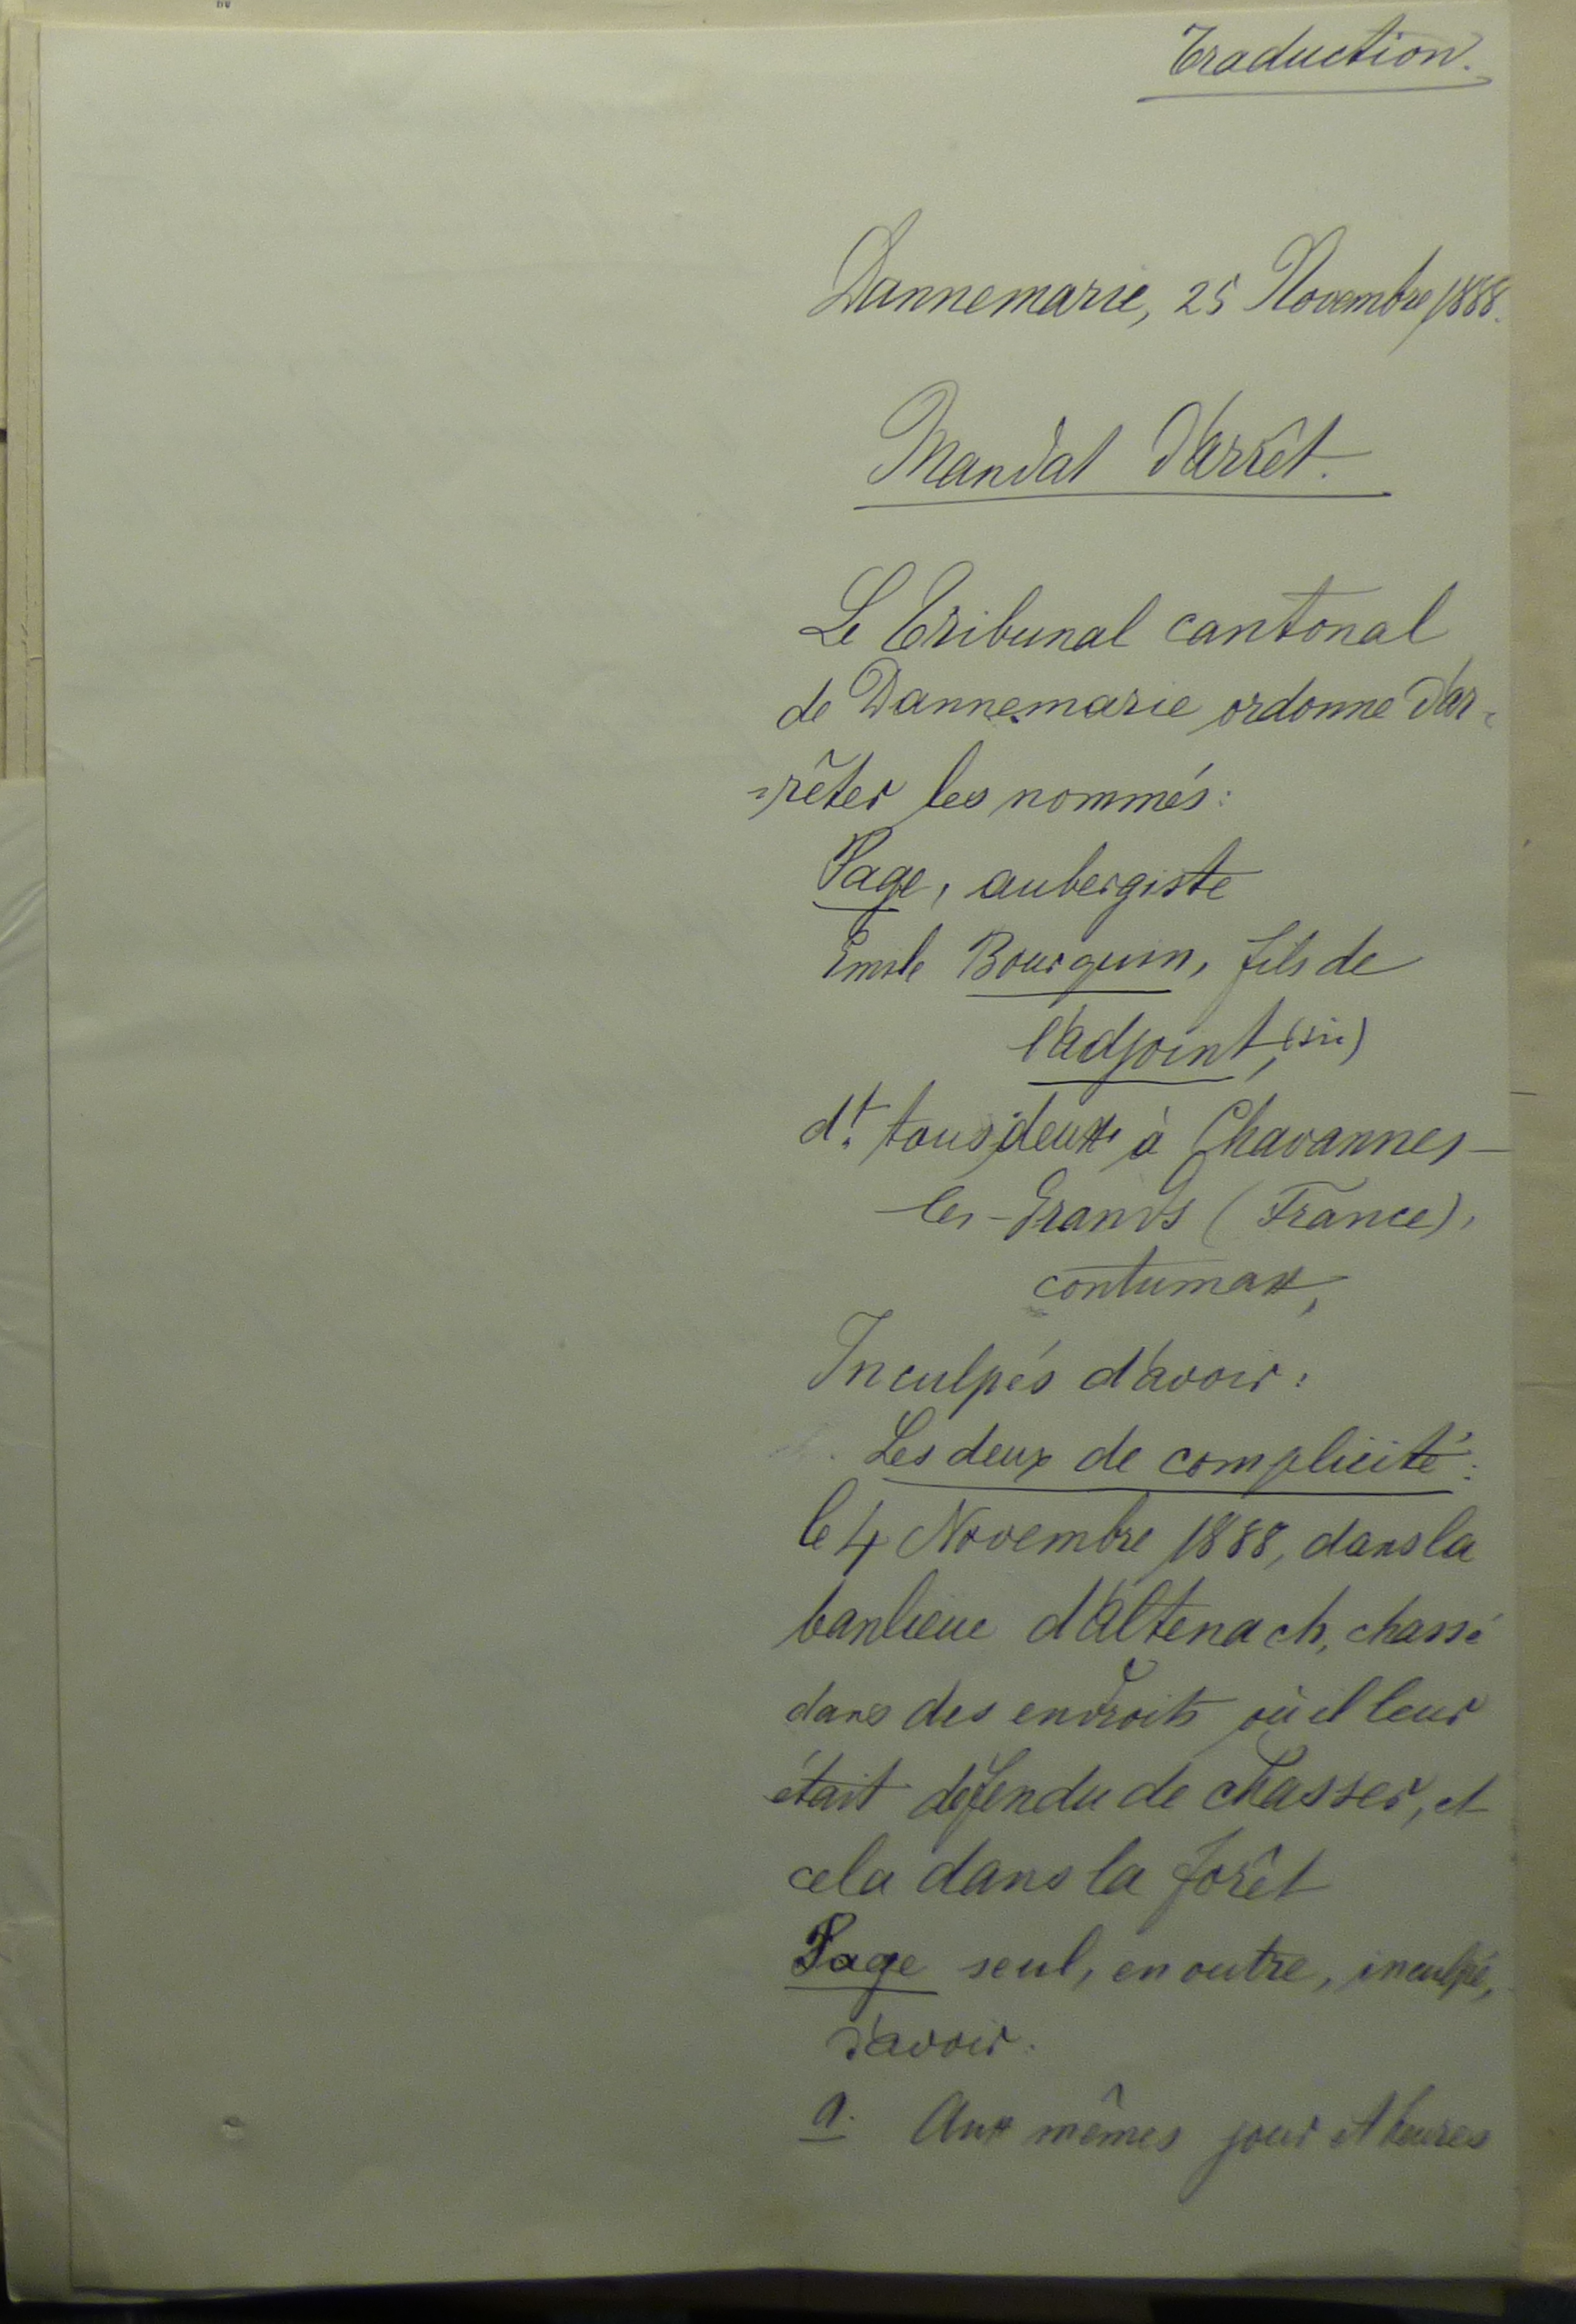 Traduction.
Dannemarie, 25 Novembre 1888.
Mandat d'arrêt.
Le Tribunal cantonal
de Dannemarie ordonne d'ar-
-rêter les nommés:
Page, aubergiste
Emile Bourquin, fils de
l'adjoint, (sic)
dt. tous deux à Chavannes-
les-Grands (France),
contumax,
Inculpés d'avoir:
Les deux de complicité:
le 4 Novembre 1888, dans la
banlieue d'Altenach, chassé
dans des endroits où il leur
était défendu de chasser, et
cela dans la forêt
Page seul, en outre, inculpé,
d'avoir.
a. Aux mêmes jour et heures